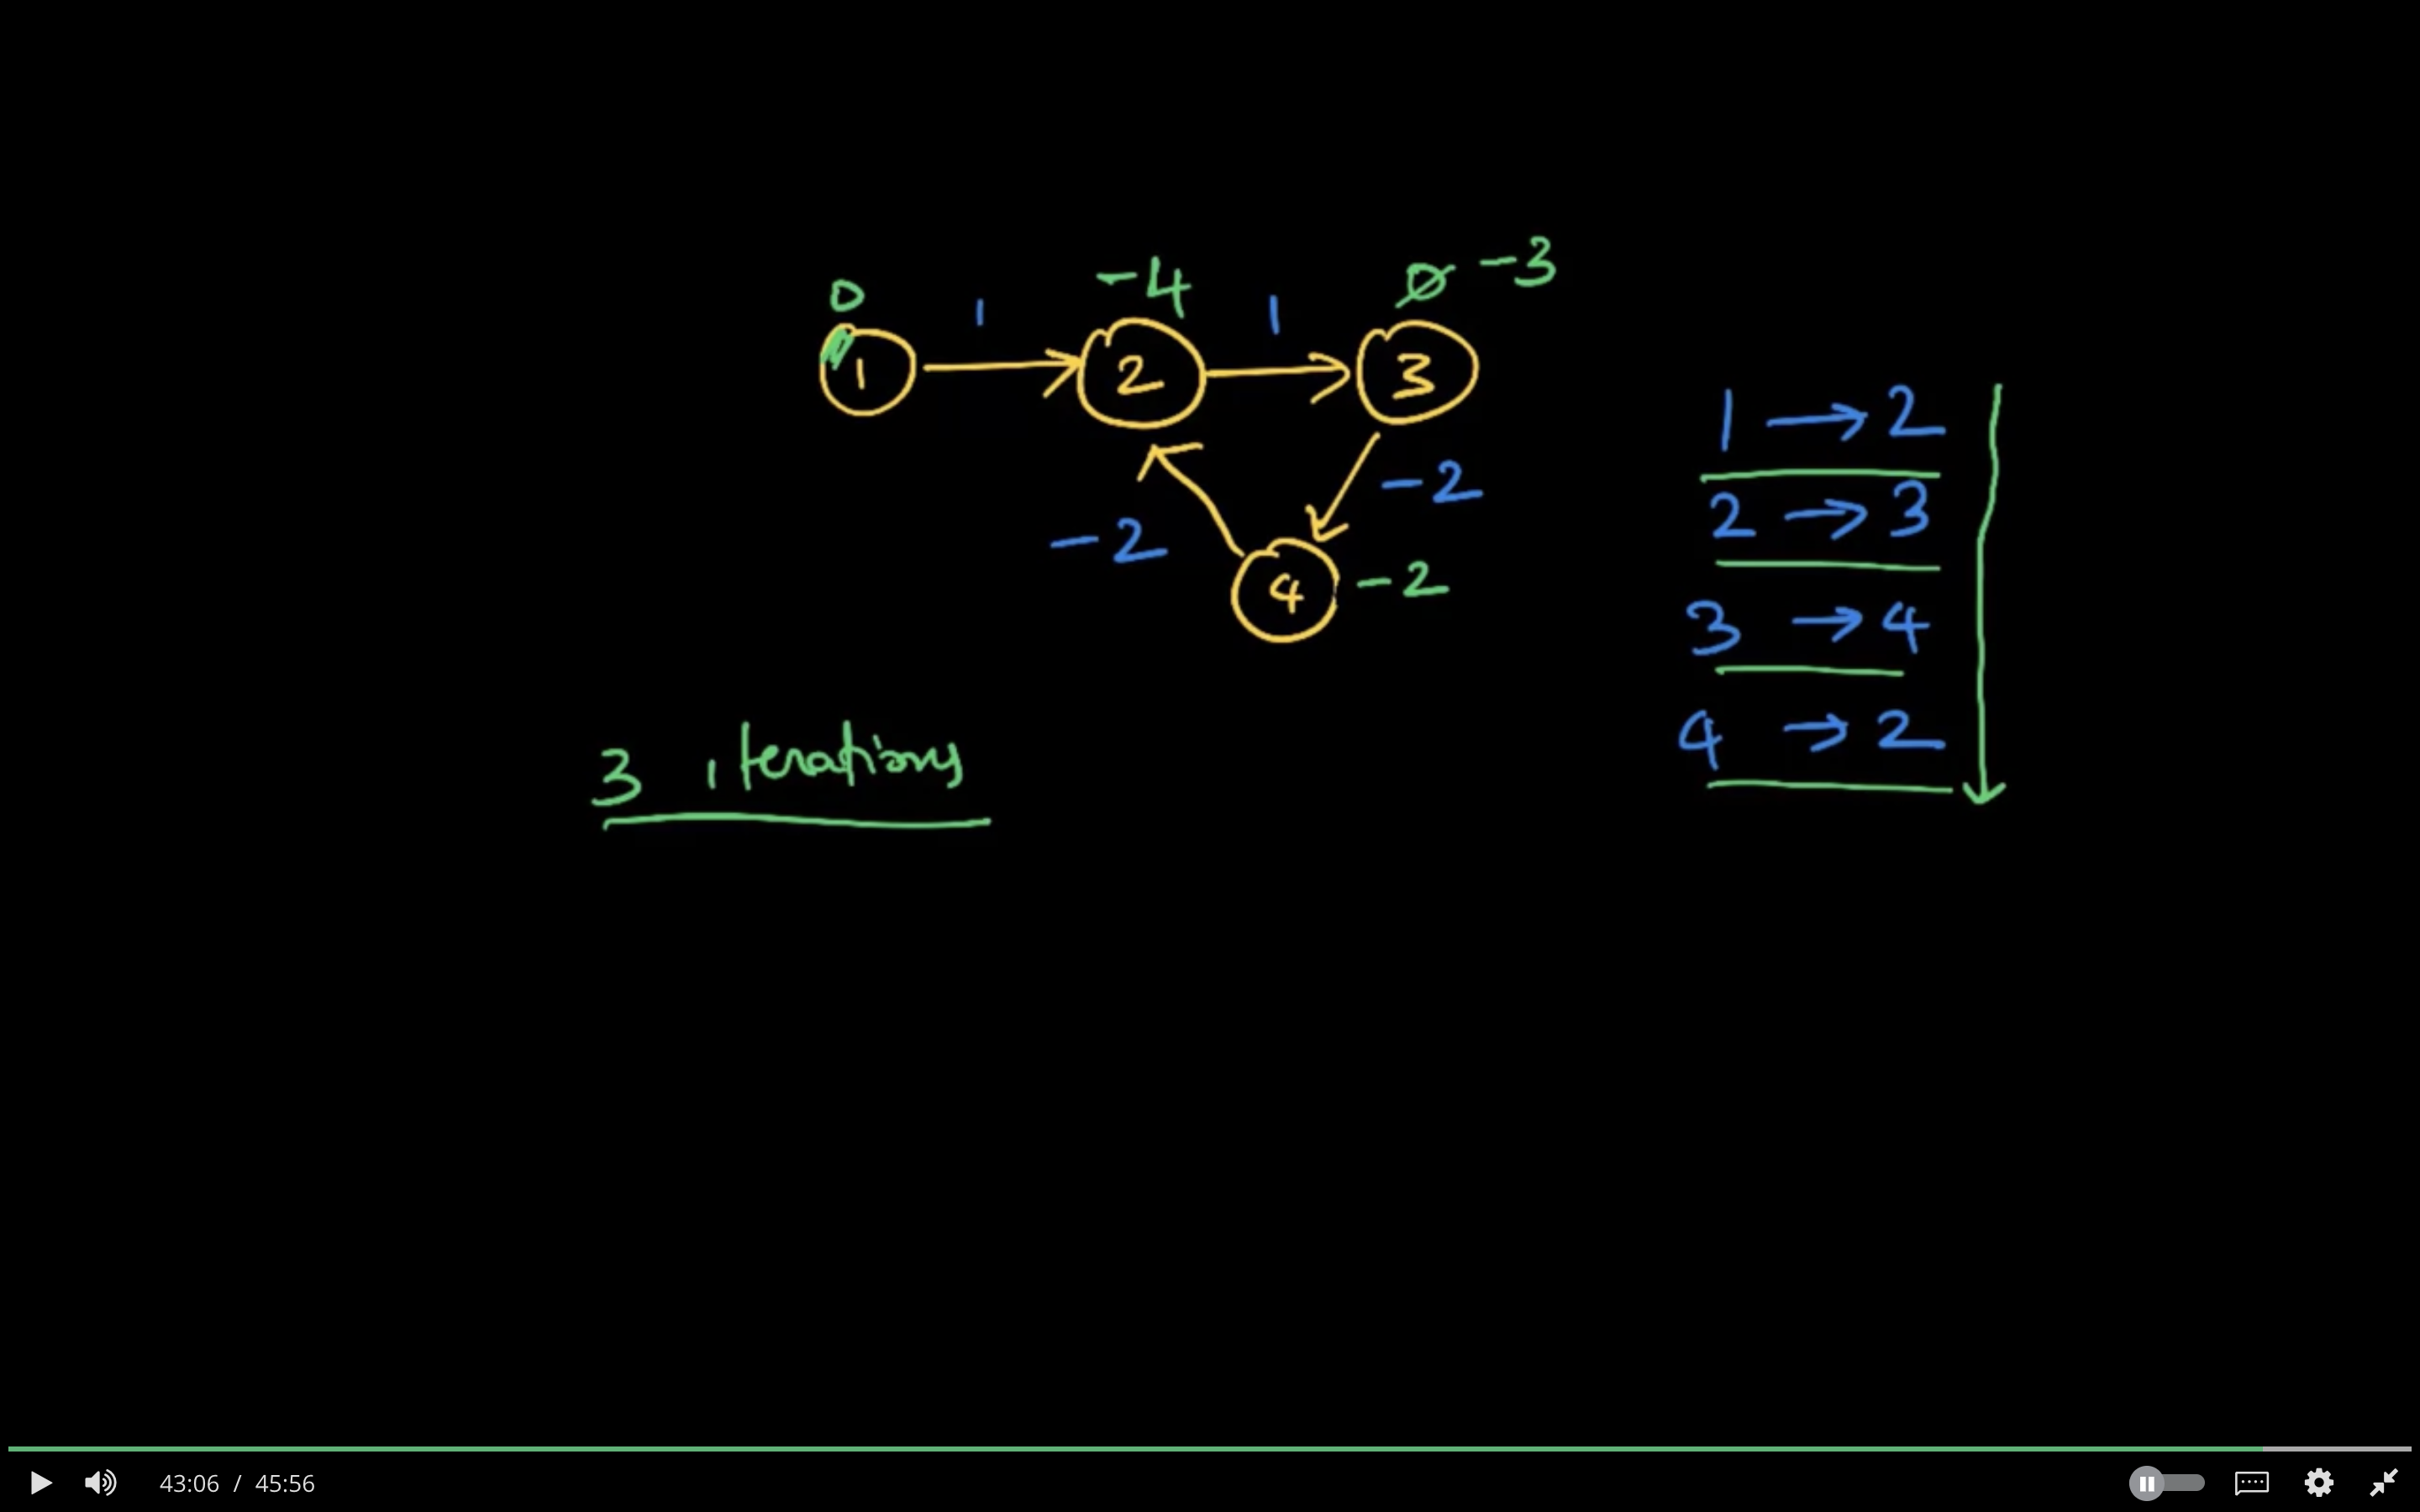 0 1 -4 1 0 -3
1 2 3
-2
-2
4 -2
1 → 2
2 → 3
3 → 4
4 → 2
3 iterations
43:06 / 45:56